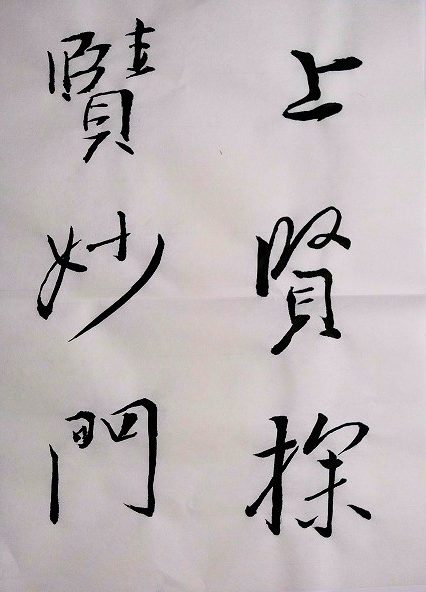 上賢探
賾妙門